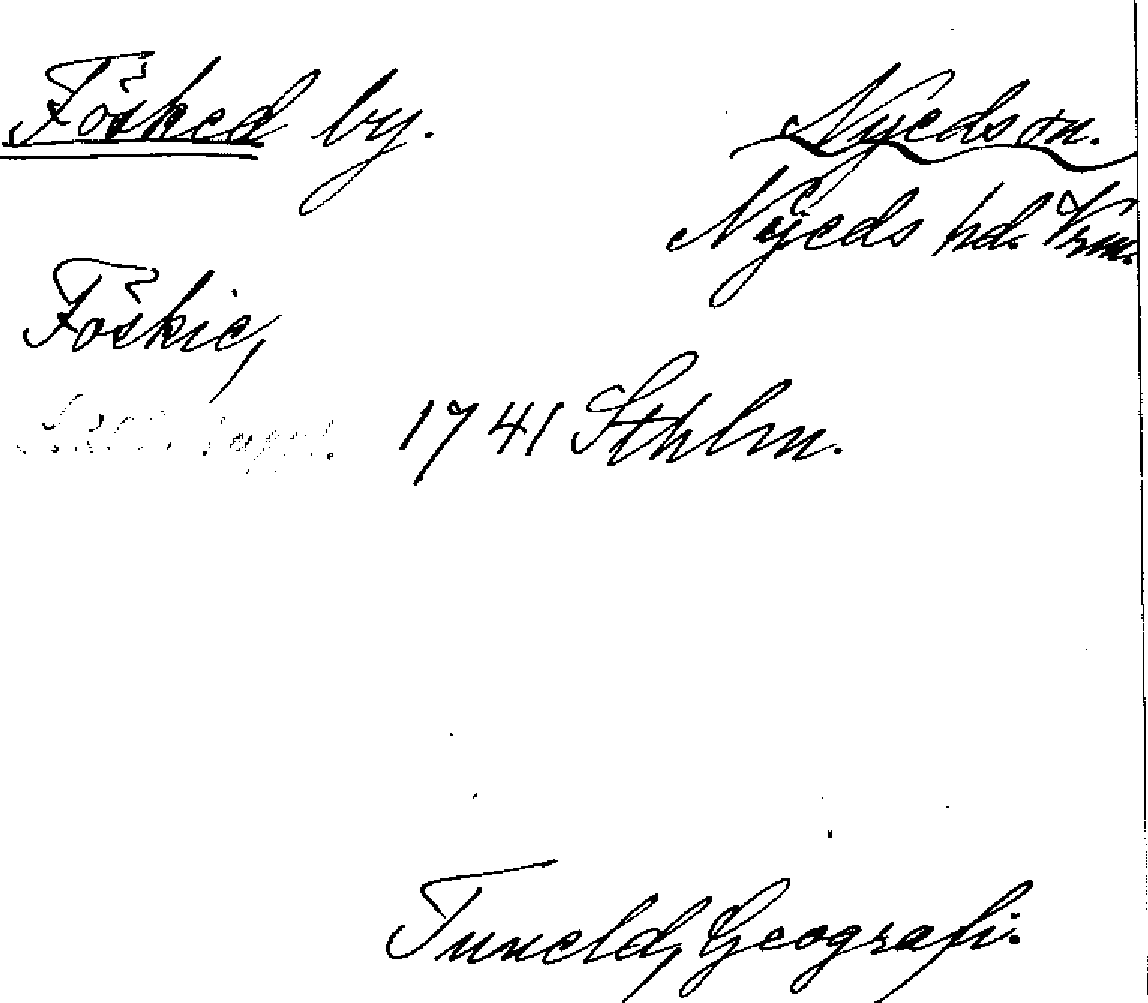 Fösked by.
Nyeds sn.
Nyeds hd. Vrm.
Föskie,
1741 Sthlm.
Tuneld, Geografi.